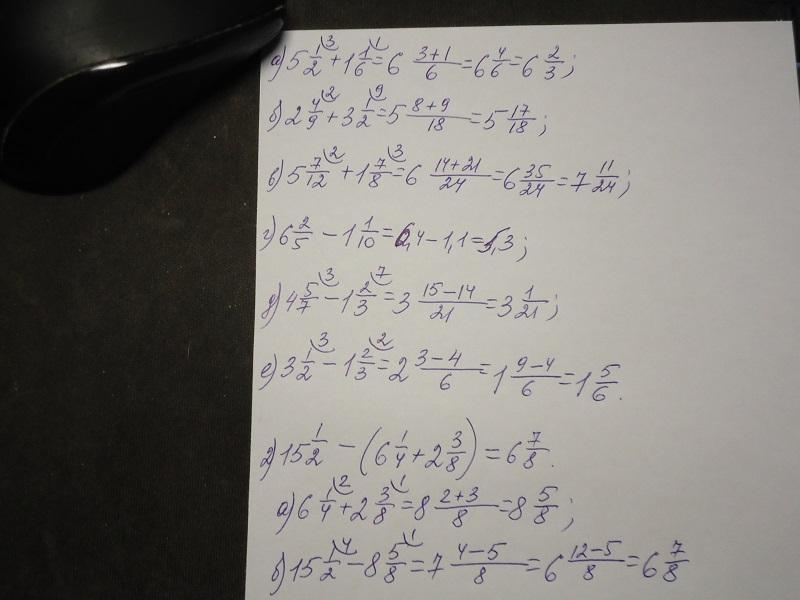 а) 5 1/2 ³ + 1 1/6 ¹ = 6 (3+1)/6 = 6 4/6 = 6 2/3;
б) 2 4/9 ² + 3 1/2 ⁹ = 5 (8+9)/18 = 5 17/18;
в) 5 7/12 ² + 1 7/8 ³ = 6 (14+21)/24 = 6 35/24 = 7 11/24;
г) 6 2/5 - 1 1/10 = 6,4 - 1,1 = 5,3;
д) 4 5/7 ³ - 1 2/3 ⁷ = 3 (15-14)/21 = 3 1/21;
е) 3 1/2 ³ - 1 2/3 ² = 2 (3-4)/6 = 1 (9-4)/6 = 1 5/6.
2) 15 1/2 - (6 1/4 + 2 3/8) = 6 7/8.
а) 6 1/4 ² + 2 3/8 ¹ = 8 (2+3)/8 = 8 5/8;
б) 15 1/2 ⁴ - 8 5/8 ¹ = 7 (4-5)/8 = 6 (12-5)/8 = 6 7/8